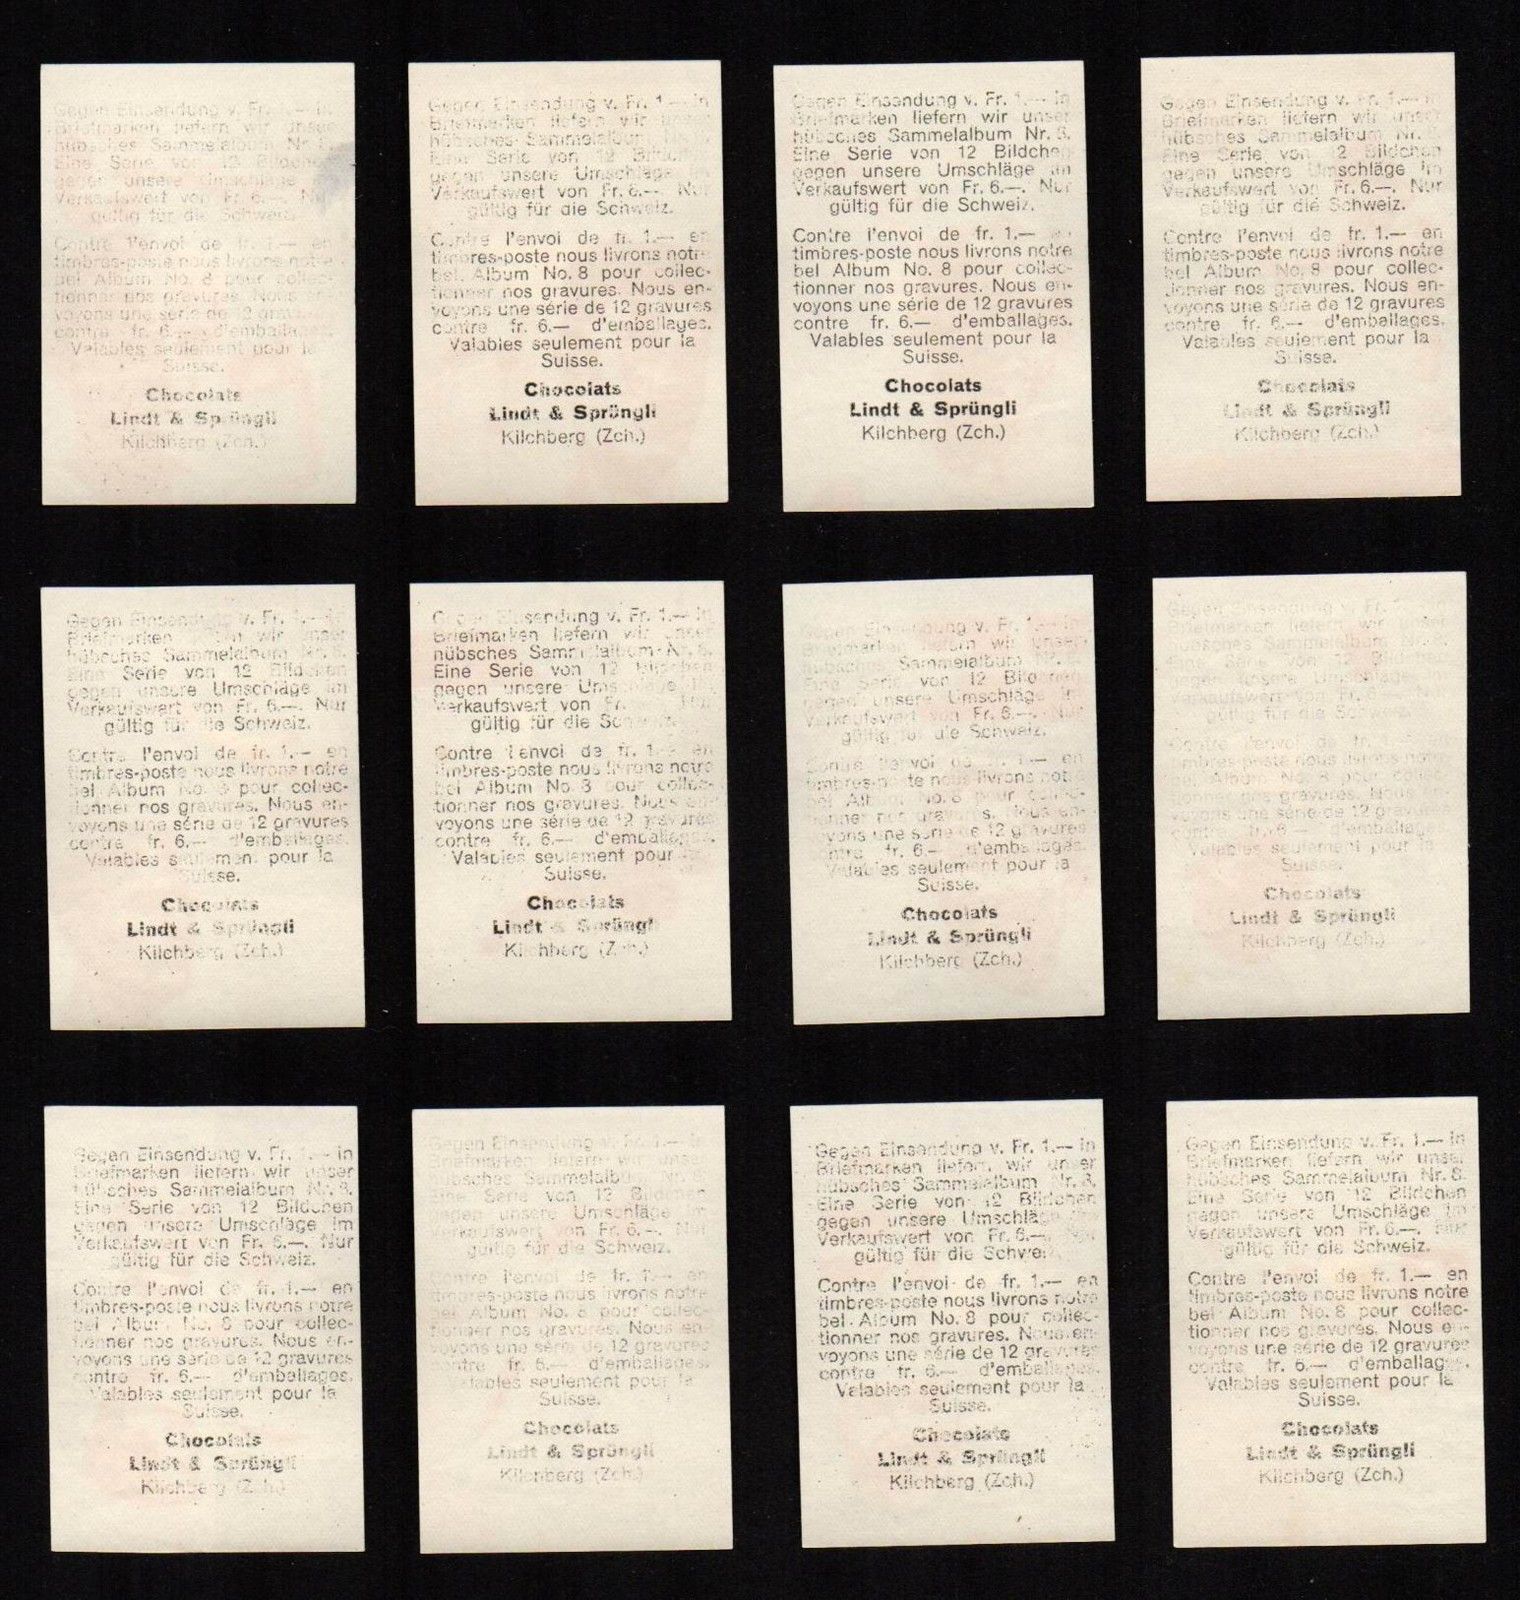 Gegen Einsendung v. Fr. in
Briefmarken liefern wir unser
hübsches Sammelalbum Nr.
Eine Serie von 12
gegen unsere Umschläge
Verkaufswert von Fr. 6.
gültig für die Schweiz.
Contre l'envoi de fr. 1.— en
timbres-poste nous livrons notre
bel Album No. 8 pour collec-
tionner nos gravures. Nous
voyons une série de 12
contre fr. 6.— d'emballages.
Valables seulement pour la
Suisse.
Chocolats
Lindt & Sprüngli
Kilchberg (Zch.)
Gegen Einsendung v. Fr. 1.— in
Briefmarken liefern wir unser
hübsches Sammelalbum
Eine Serie von 12 Bildchen
gegen unsere Umschläge
Verkaufswert von Fr. 6.—. Nur
gültig für die Schweiz.
Contre l'envoi de fr. 1.— en
timbres-poste nous livrons notre
bel Album No. 8 pour collec-
tionner nos gravures. Nous en-
voyons une série de 12 gravures
contre fr. 6.— d'emballages.
Valables seulement pour la
Suisse.
Chocolats
Lindt & Sprüngli
Kilchberg (Zch.)
Gegen Einsendung v. Fr. 1.— in
Briefmarken liefern wir unser
hübsches Sammelalbum Nr. 8.
Eine Serie von 12 Bildchen
gegen unsere Umschläge im
Verkaufswert von Fr. 6.—. Nur
gültig für die Schweiz.
Contre l'envoi de fr. 1.— en
timbres-poste nous livrons notre
bel Album No. 8 pour collec-
tionner nos gravures. Nous en-
voyons une série de 12 gravures
contre fr. 6.— d'emballages.
Valables seulement pour la
Suisse.
Chocolats
Lindt & Sprüngli
Kilchberg (Zch.)
Gegen Einsendung v. Fr. 1.— in
Briefmarken liefern wir unser
hübsches Sammelalbum Nr.
Eine Serie von 12 Bildchen
gegen unsere Umschläge im
Verkaufswert von Fr. 6.—. Nur
gültig für die Schweiz.
Contre l'envoi de fr. 1.— en
timbres-poste nous livrons notre
bel Album No. 8 pour collec-
tionner nos gravures. Nous en-
voyons une série de 12 gravures
contre fr. 6.— d'emballages.
Valables seulement pour la
Suisse.
Chocolats
Lindt & Sprüngli
Kilchberg (Zch.)
Gegen Einsendung v. Fr. 1.— in
Briefmarken liefern wir unser
hübsches Sammelalbum Nr. 8.
Eine Serie von 12 Bildchen
gegen unsere Umschläge im
Verkaufswert von Fr. 6.—. Nur
gültig für die Schweiz.
Contre l'envoi de fr. 1.— en
timbres-poste nous livrons notre
bel Album No. 8 pour collec-
tionner nos gravures. Nous en-
voyons une série de 12 gravures
contre fr. 6.— d'emballages.
Valables seulement pour la
Suisse.
Chocolats
Lindt & Sprüngli
Kilchberg (Zch.)
Gegen Einsendung v. Fr. 1.— in
Briefmarken liefern wir unser
hübsches Sammelalbum Nr. 8.
Eine Serie von 12 Bildchen
gegen unsere Umschläge
Verkaufswert von Fr.
gültig für die Schweiz.
Contre l'envoi de fr. 1.— en
timbres-poste nous livrons notre
bel Album No. 8 pour collec-
tionner nos gravures. Nous en-
voyons une série de 12 gravures
contre fr. 6.— d'emballages.
Valables seulement pour
Suisse.
Chocolats
Lindt & Sprüngli
Kilchberg (Zch.)
Gegen Einsendung v. Fr. 1.— in
Briefmarken liefern wir unser
hübsches Sammelalbum Nr.
Eine Serie von 12 Bildchen
gegen unsere Umschläge im
Verkaufswert von Fr. 6.—. Nur
gültig für die Schweiz.
Contre l'envoi de fr. 1.— en
timbres-poste nous livrons notre
bel Album No. 8 pour collec-
tionner nos gravures. Nous en-
voyons une série de 12 gravures
contre fr. 6.— d'emballages.
Valables seulement pour la
Suisse.
Chocolats
Lindt & Sprüngli
Kilchberg (Zch.)
Gegen
Briefmarken liefern wir unser
hübsches Sammelalbum
Serie von 12 Bildchen
gegen unsere Umschläge
Verkaufswert von Fr. 6.
gültig für die Schweiz.
Contre l'envoi de fr.
timbres-poste nous livrons notre
bel Album No. 8 pour collec-
nos gravures. Nous en-
voyons une série de 12 gravures
contre fr. 6.— d'emballages.
Valables seulement pour la
Suisse.
Chocolats
Lindt & Sprüngli
Kilchberg (Zch.)
Gegen Einsendung v. Fr. 1.— in
Briefmarken liefern wir unser
hübsches Sammelalbum Nr. 8.
Eine Serie von 12 Bildchen
gegen unsere Umschläge im
Verkaufswert von Fr. 6.—. Nur
gültig für die Schweiz.
Contre l'envoi de fr. 1.— en
timbres-poste nous livrons notre
bel Album No. 8 pour collec-
tionner nos gravures. Nous en-
voyons une série de 12 gravures
contre fr. 6.— d'emballages.
Valables seulement pour la
Suisse.
Chocolats
Lindt & Sprüngli
Kilchberg (Zch.)
Gegen Einsendung v. Fr. 1.— in
Briefmarken liefern wir unser
hübsches Sammelalbum
Eine Serie von 12 Bildchen
gegen unsere Umschläge im
Verkaufswert von Fr. 6.—.
gültig für die Schweiz.
Contre l'envoi de fr. 1.— en
timbres-poste nous livrons notre
bel Album No. 8 pour collec-
tionner nos gravures. Nous en-
voyons une série de 12 gravures
contre fr. 6.— d'emballages.
Valables seulement pour la
Suisse.
Chocolats
Lindt & Sprüngli
Kilchberg (Zch.)
Gegen Einsendung v. Fr. 1.— in
Briefmarken liefern wir unser
hübsches Sammelalbum Nr. 8.
Eine Serie von 12 Bildchen
gegen unsere Umschläge
Verkaufswert von Fr. 6.—. Nur
gültig für die Schweiz.
Contre l'envoi de fr. 1.— en
timbres-poste nous livrons notre
bel Album No. 8 pour collec-
tionner nos gravures. Nous en-
voyons une série de 12 gravures
contre fr. 6.— d'emballages.
Valables seulement pour la
Suisse.
Chocolats
Lindt & Sprüngli
Kilchberg (Zch.)
Gegen Einsendung v. Fr. 1.— in
Briefmarken liefern wir unser
hübsches Sammelalbum Nr. 8.
Eine Serie von 12 Bildchen
gegen unsere Umschläge im
Verkaufswert von Fr. 6.—. Nur
gültig für die Schweiz.
Contre l'envoi de fr. 1.— en
timbres-poste nous livrons notre
bel Album No. 8 pour collec-
tionner nos gravures. Nous en-
voyons une série de 12 gravures
contre fr. 6.— d'emballages.
Valables seulement pour la
Suisse.
Chocolats
Lindt & Sprüngli
Kilchberg (Zch.)